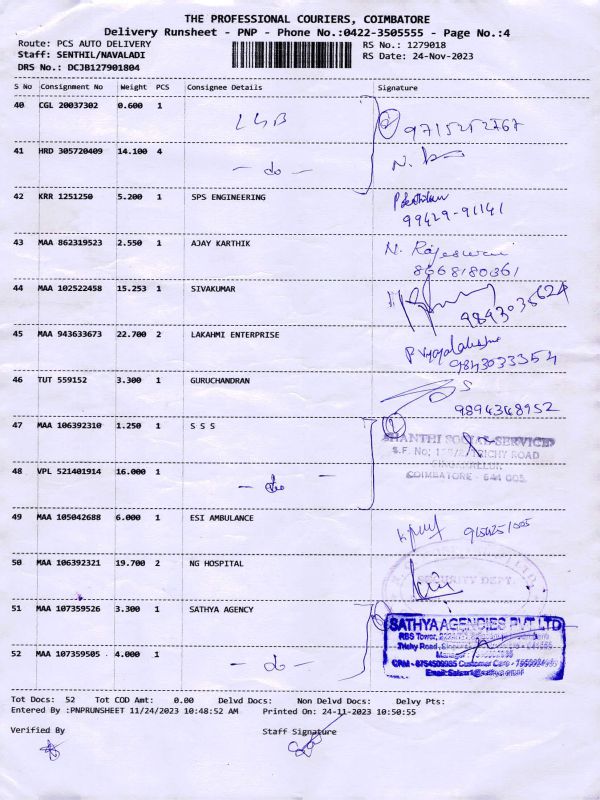 THE PROFESSIONAL COURIERS, COIMBATORE
Delivery Runsheet - PNP - Phone No.:0422-3505555 - Page No.:4
Route: PCS AUTO DELIVERY RS No.: 1279018
Staff: SENTHIL/NAVALADI RS Date: 24-Nov-2023
DRS No.: DCJB127901804
S No Consignment No Weight PCS Consignee Details Signature
40 CGL 20037302 0.600 1
9715252767
41 HRD 305720409 14.100 4 - do -
42 KRR 1251250 5.200 1 SPS ENGINEERING
99429-91141
43 MAA 862319523 2.550 1 AJAY KARTHIK N. Rajeswari
8668180361
44 MAA 102522458 15.253 1 SIVAKUMAR
9893035624
45 MAA 943633673 22.700 2 LAKAHMI ENTERPRISE
9843033354
46 TUT 559152 3.300 1 GURUCHANDRAN
9894348952
47 MAA 106392310 1.250 1 S S S
SHANTHI SOCIAL SERVICES
S.F. No: TRICHY ROAD
COIMBATORE - 641 005.
48 VPL 521401914 16.000 1 - do -
49 MAA 105042688 6.000 1 ESI AMBULANCE
50 MAA 106392321 19.700 2 NG HOSPITAL
SECURITY DEPT.
51 MAA 107359526 3.300 1 SATHYA AGENCY
SATHYA AGENCIES PVT LTD
RBS Tower,
Trichy Road,
Manager
CRM - 8754509985 Customer Care -
52 MAA 107359505 4.000 1 - do -
Tot Docs: 52 Tot COD Amt: 0.00 Delvd Docs: Non Delvd Docs: Delvy Pts:
Entered By :PNPRUNSHEET 11/24/2023 10:48:52 AM Printed On: 24-11-2023 10:50:55
Verified By Staff Signature